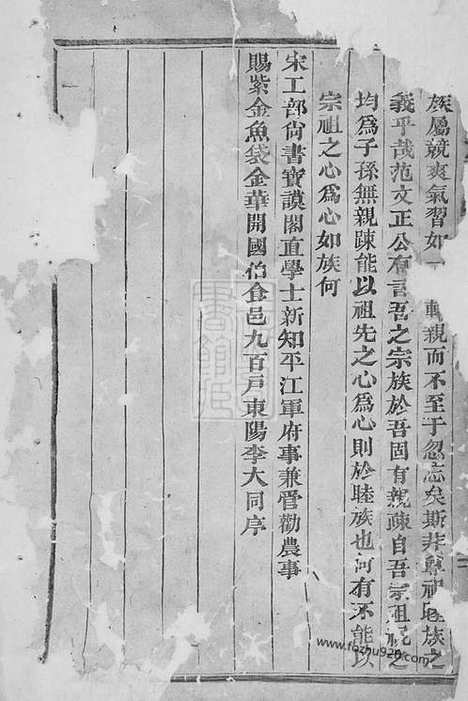 族屬競爽氣習如一
輯親而不至于忽忘矣斯非尊祖睦族之
義乎哉范文正公有言吾之宗族於吾固有親疎自吾宗祖視之
均爲子孫無親疎能以祖先之心爲心則於睦族也何有不能以
宗祖之心爲心如族何
宋工部尙書寶謨閣直學士新知平江軍府事兼管勸農事
賜紫金魚袋金華開國伯食邑九百戸東陽李大同序
www.fozhu920.com